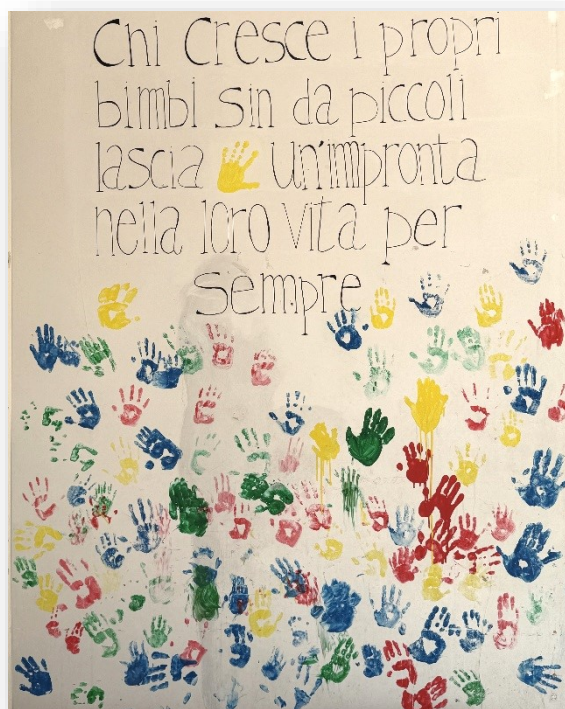 Chi Cresce i propri
bimbi sin da piccoli
lascia un'impronta
nella loro vita per
sempre